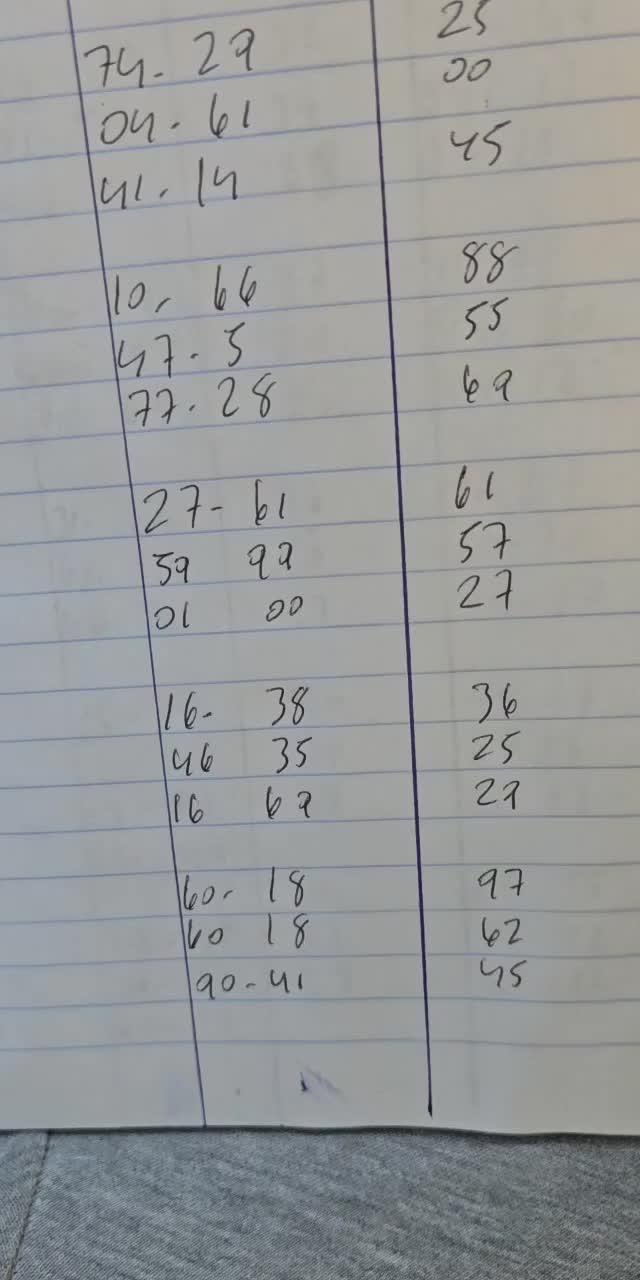 74. 29 25
04. 61 00
41. 14 45
10. 66 88
47. 5 55
77. 28 69
27- 61 61
59 99 57
01 00 27
16. 38 36
46 35 25
16 69 29
60. 18 97
60 18 62
90-41 45